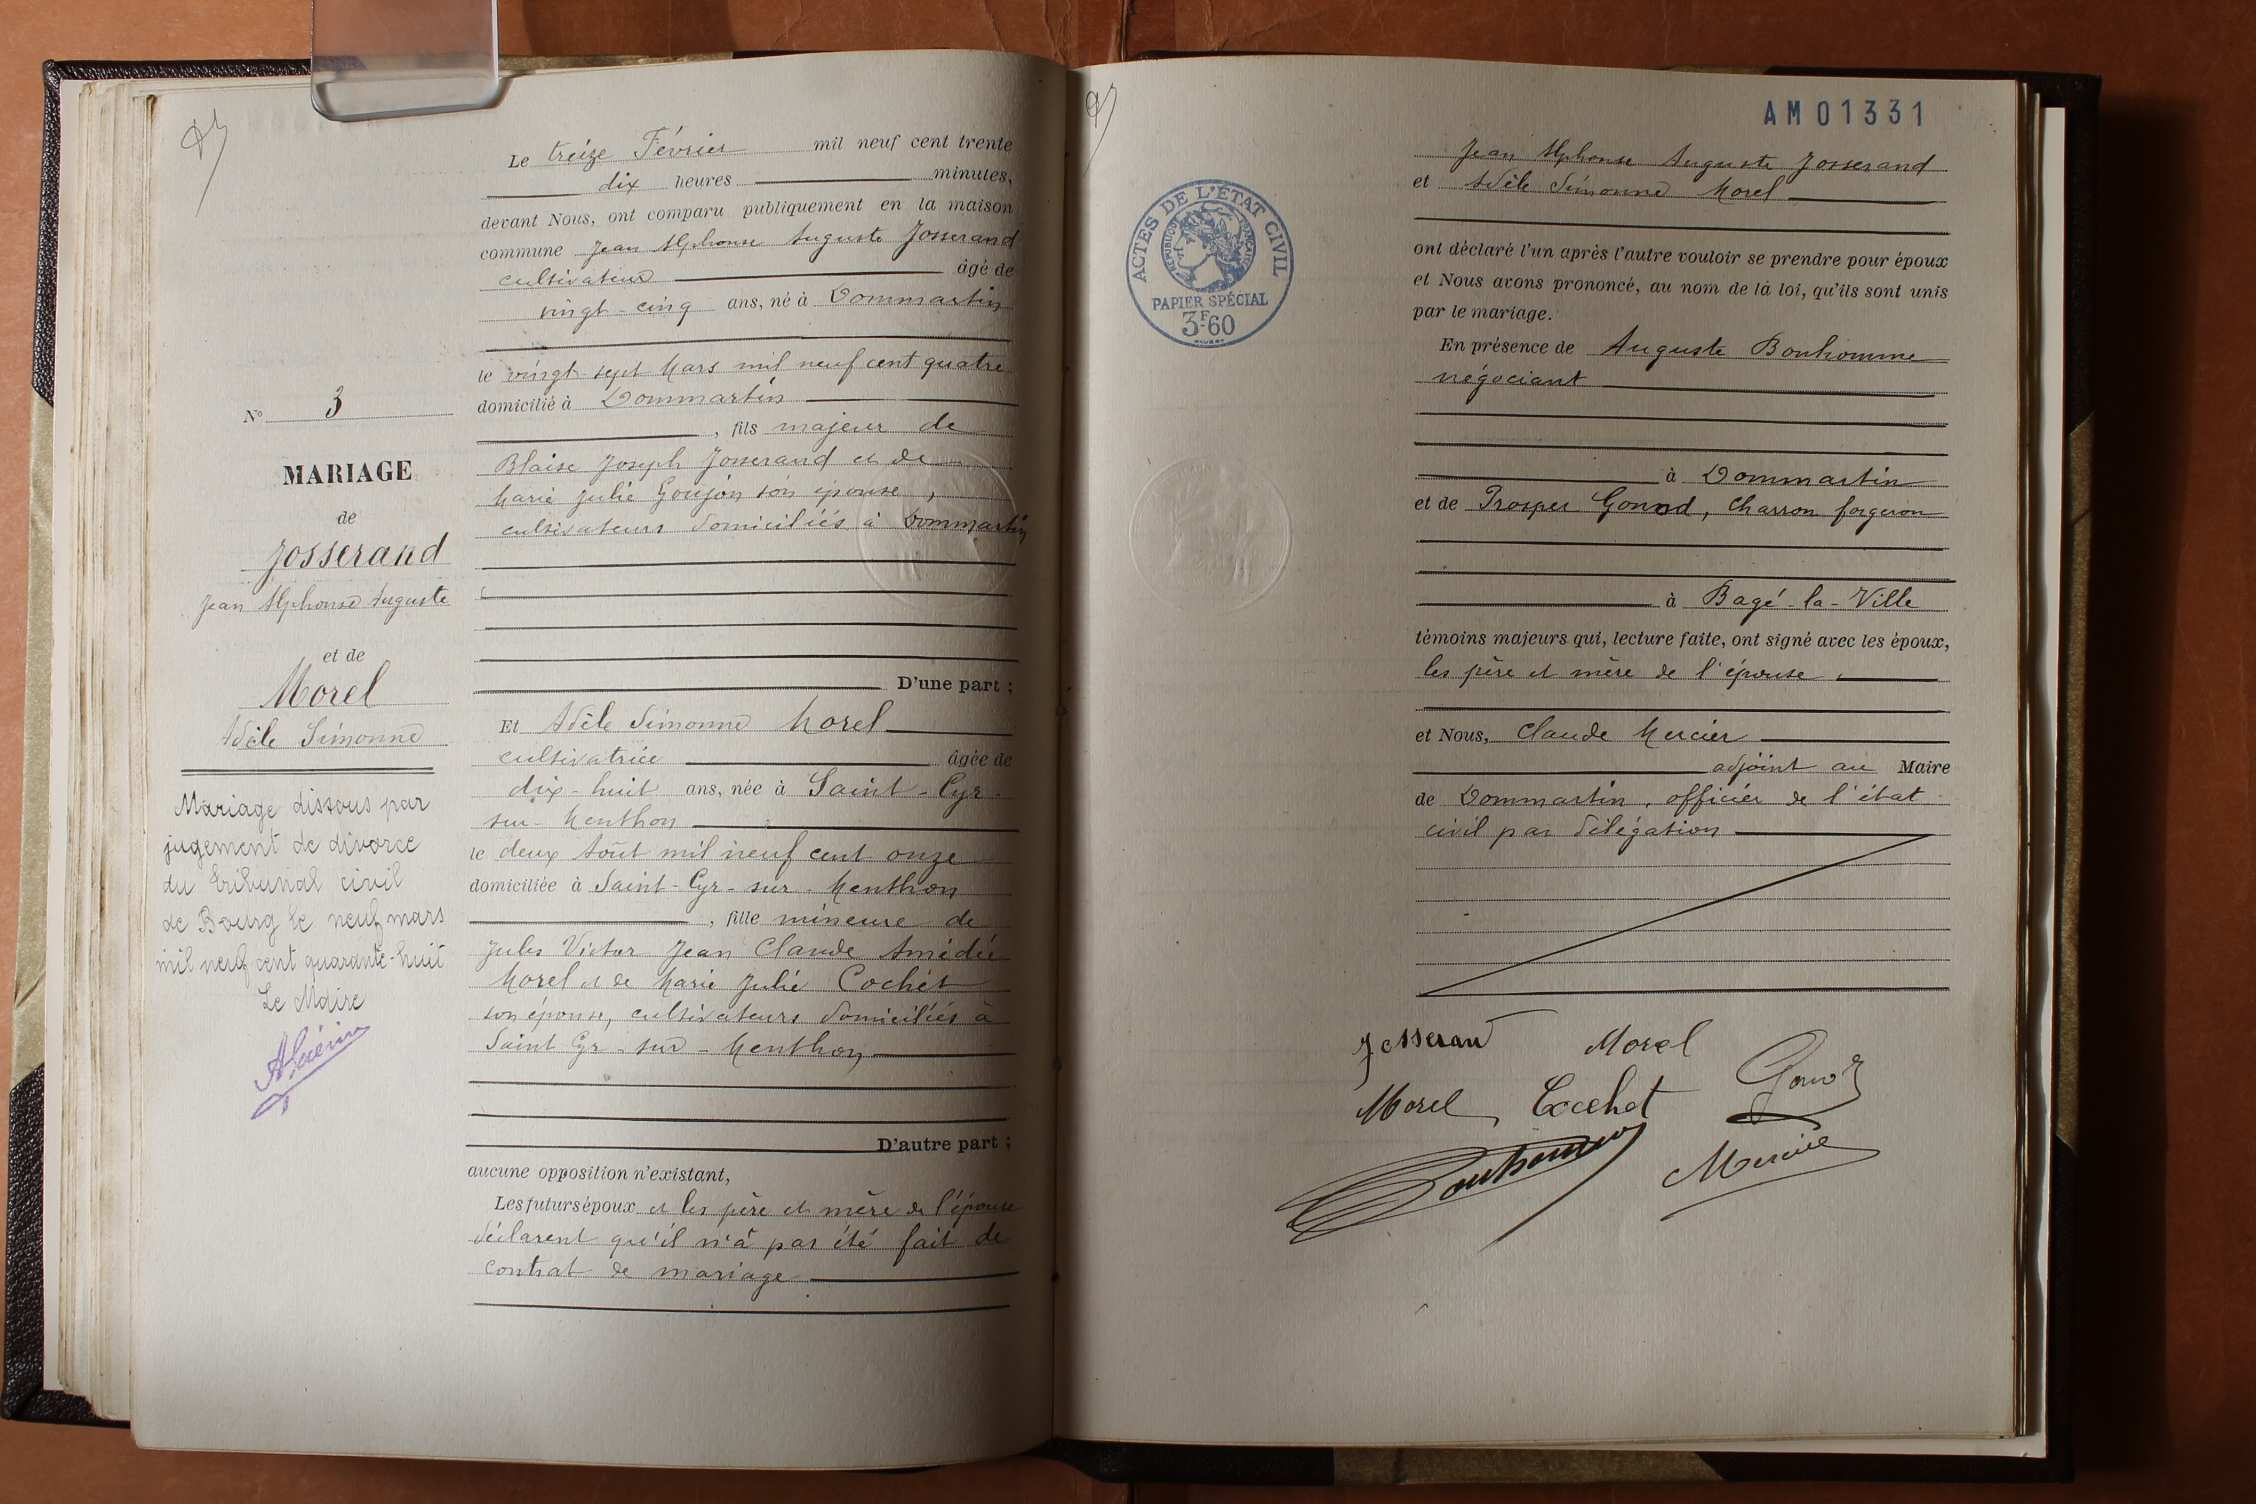 Le treize Février mil neuf cent trente
dix heures minutes,
devant Nous, ont comparu publiquement en la maison
commune Jean Alphonse Auguste Josserand
cultivateur âgé de
vingt-cinq ans, né à Dommartin
le vingt-sept Mars mil neuf cent quatre
domicilié à Dommartin
, fils majeur de
Blaise Joseph Josserand et de
Marie Julie Goujon son épouse,
cultivateurs domiciliés à Dommartin
D'une part ;
Et Adèle Simonne Morel
cultivatrice âgée de
dix-huit ans, née à Saint-Cyr-
sur-Menthon
le deux Août mil neuf cent onze
domiciliée à Saint-Cyr-sur-Menthon
, fille mineure de
Jules Victor Jean Claude Amédée
Morel et de Marie Julie Cochet
son épouse, cultivateurs domiciliés à
Saint Cyr-sur-Menthon
D'autre part ;
aucune opposition n'existant,
Les futurs époux et les père et mère de l'épouse
déclarent qu'il n'a pas été fait de
contrat de mariage
N° 3
MARIAGE
de
Josserand
Jean Alphonse Auguste
et de
Morel
Adèle Simonne
Mariage dissous par
jugement de divorce
du tribunal civil
de Bourg le neuf mars
mil neuf cent quarante-huit
Le Maire
AM01331
ACTES DE L'ÉTAT CIVIL
RÉPUBLIQUE FRANÇAISE
PAPIER SPÉCIAL
3F60
Jean Alphonse Auguste Josserand
et Adèle Simonne Morel
ont déclaré l'un après l'autre vouloir se prendre pour époux
et Nous avons prononcé, au nom de la loi, qu'ils sont unis
par le mariage.
En présence de Auguste Bonhomme
négociant
à Dommartin
et de Prosper Gonod, charron forgeron
à Bagé-la-Ville
témoins majeurs qui, lecture faite, ont signé avec les époux,
les père et mère de l'épouse,
et Nous, Claude Mercier
adjoint au Maire
de Dommartin, officier de l'état
civil par délégation
Josserand Morel
Morel Cochet Gonod
Bonhomme Mercier